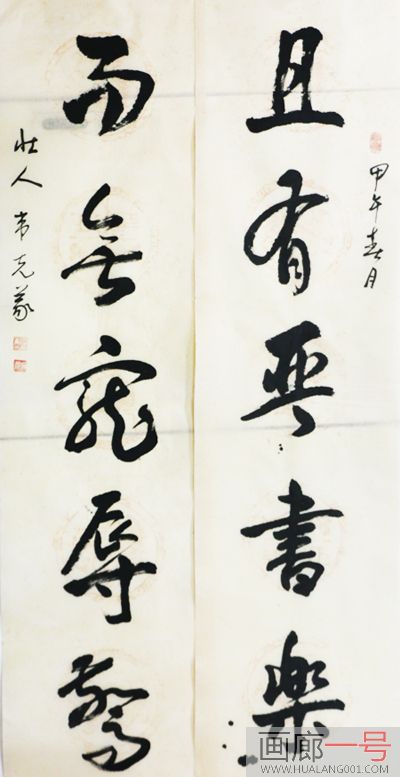 甲午春月
且有琴書樂
而無寵辱驚
壮人韋克義
画廊一号
WWW.HUALANG001.COM